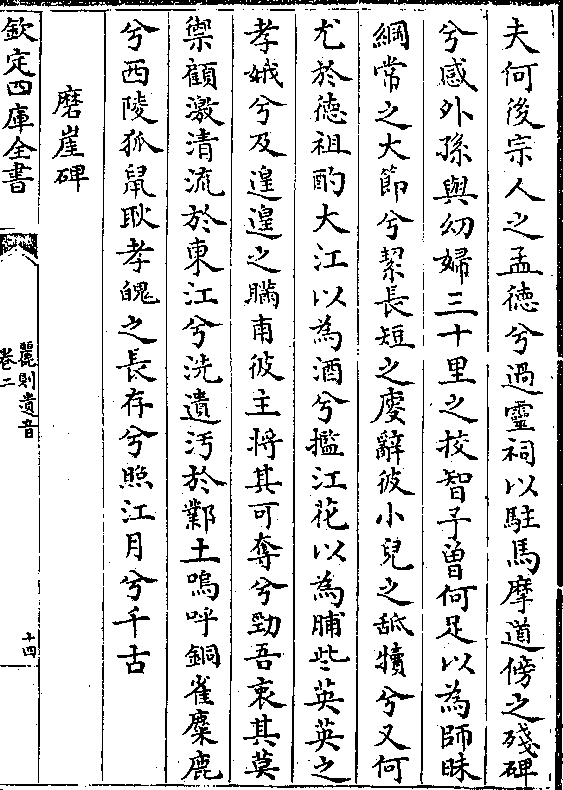 夫何後宗人之孟德兮過靈祠以駐馬摩道傍之殘碑
兮感外孫與幼婦三十里之挍智子曽何足以為師昧
綱常之大節兮挈長短之廋辭彼小兒之舐犢兮又何
尤於徳祖酌大江以為酒兮㩜江花以為脯些英英之
孝娥兮及遑遑之瞞甫彼主将其可奪兮勁吾衷其莫
禦顧激清流於東江兮洗遺汚於鄴土嗚呼銅雀麋鹿
兮西陵狐鼠耿孝魄之長存兮照江月兮千古
磨崖碑
欽定四庫全書
麗則遺音
卷二
十四